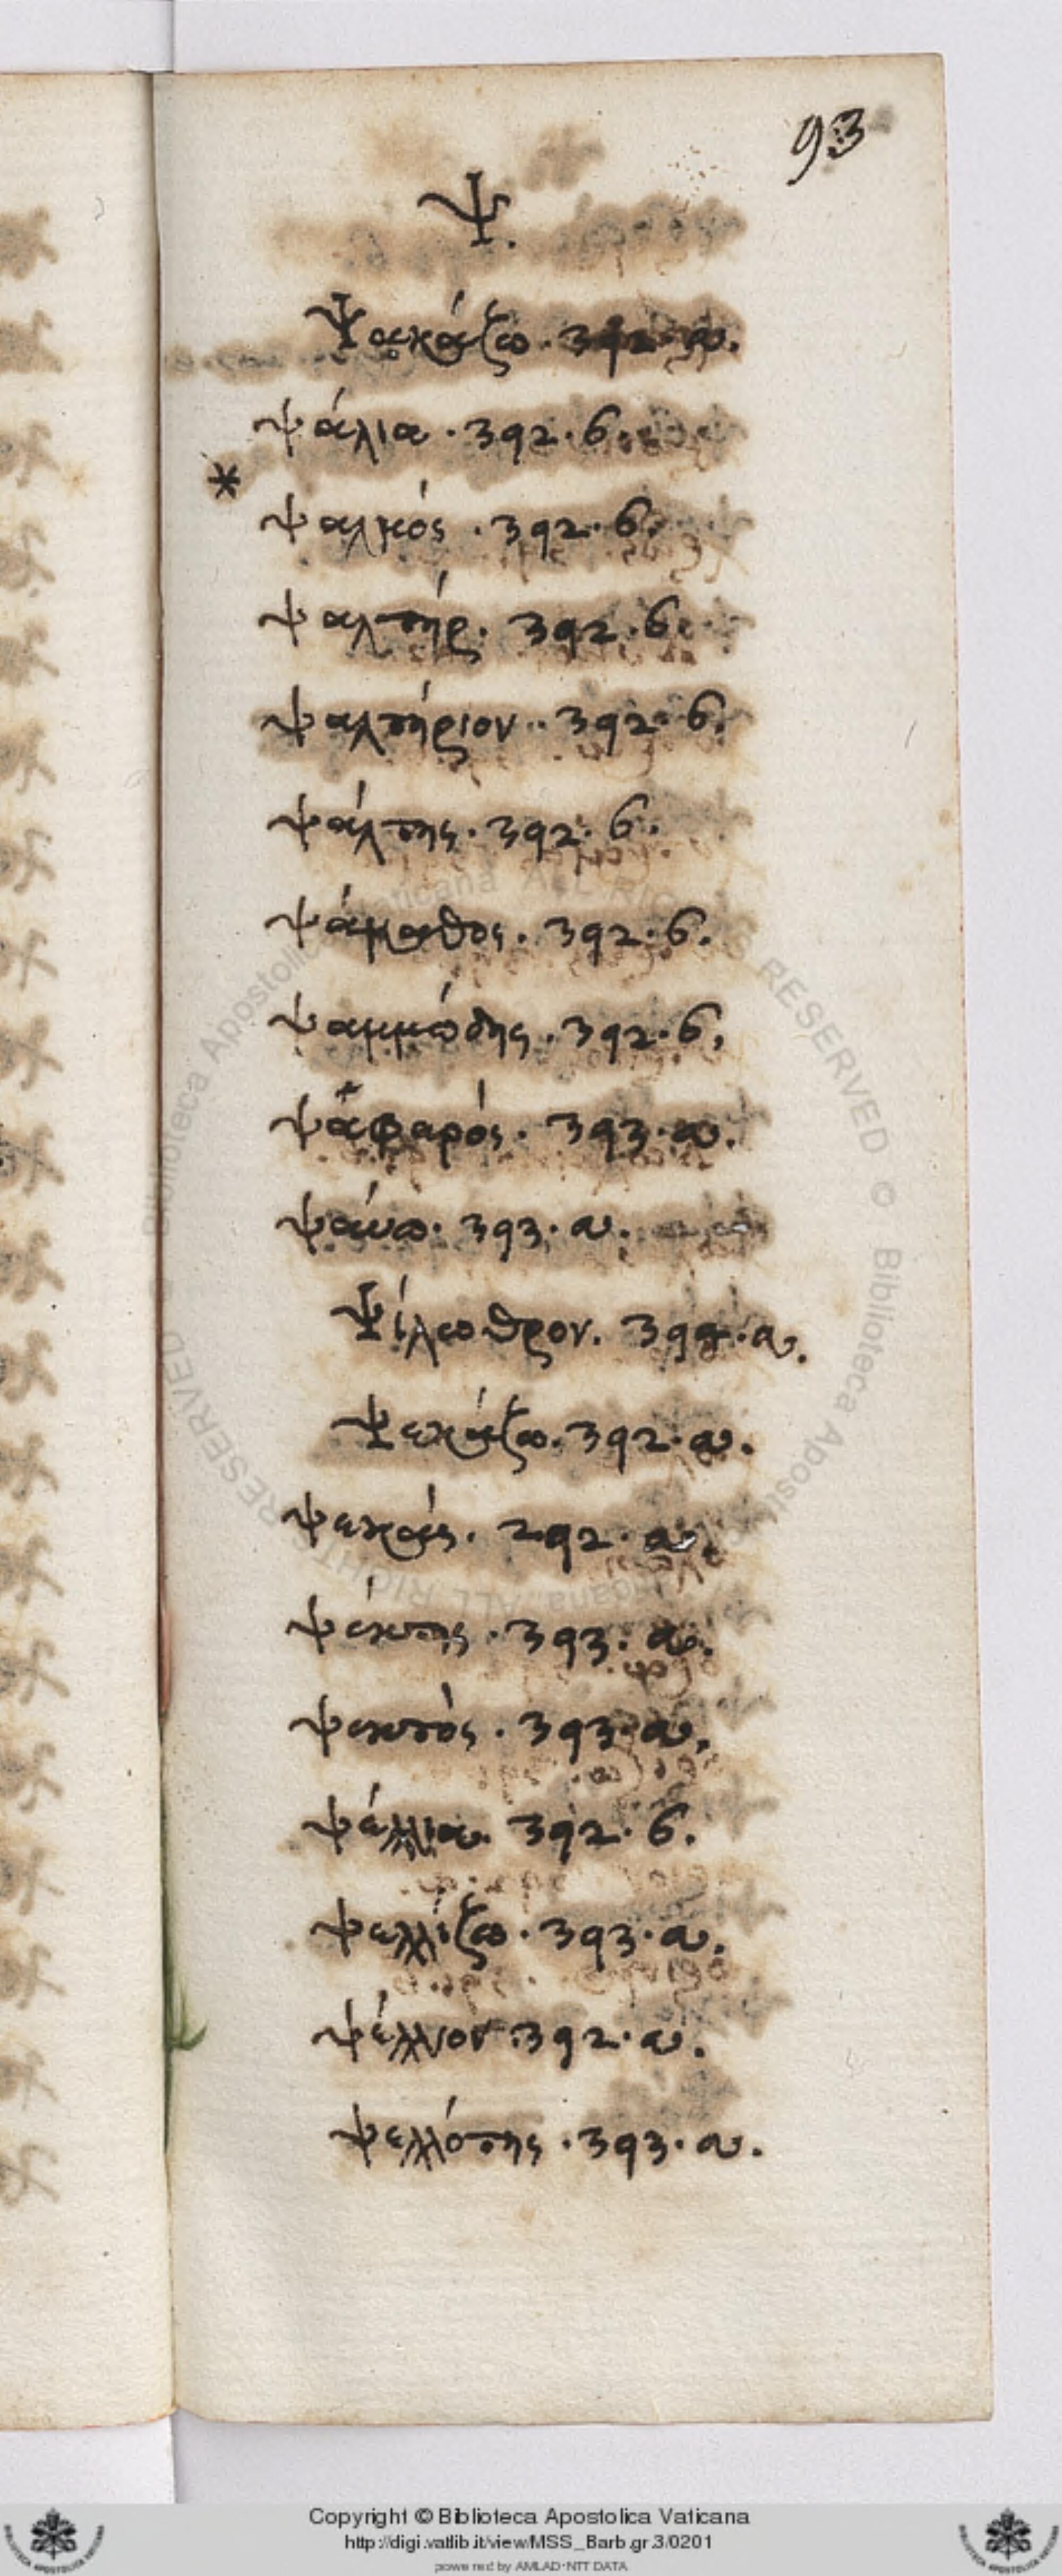 93
Ψ.
Ψακάζω. 392. α.
ψάλια. 392. β.
*
ψαλμός. 392. β.
ψαλτήρ. 392. β.
ψαλτήριον. 392. β.
ψάλτης. 392. β.
ψάμαθος. 392. β.
ψαμμώδης. 392. β.
ψαφαρός. 393. α.
ψάυω. 393. α.
Ψίλεοθρον. α.
Ψεκάζω. 392. α.
ψεκάς. 292. α.
ψέκτης. 393. α.
ψεκτὸς. 393. α.
ψέλλια. 392. β.
ψελλίζω. 393. α.
ψέλλιον 392. α.
ψελλότης. 393. α.
Copyright © Biblioteca Apostolica Vaticana
http://digi.vatlib.it/view/MSS_Barb.gr.3/0201
powered by AMLAD-NTT DATA